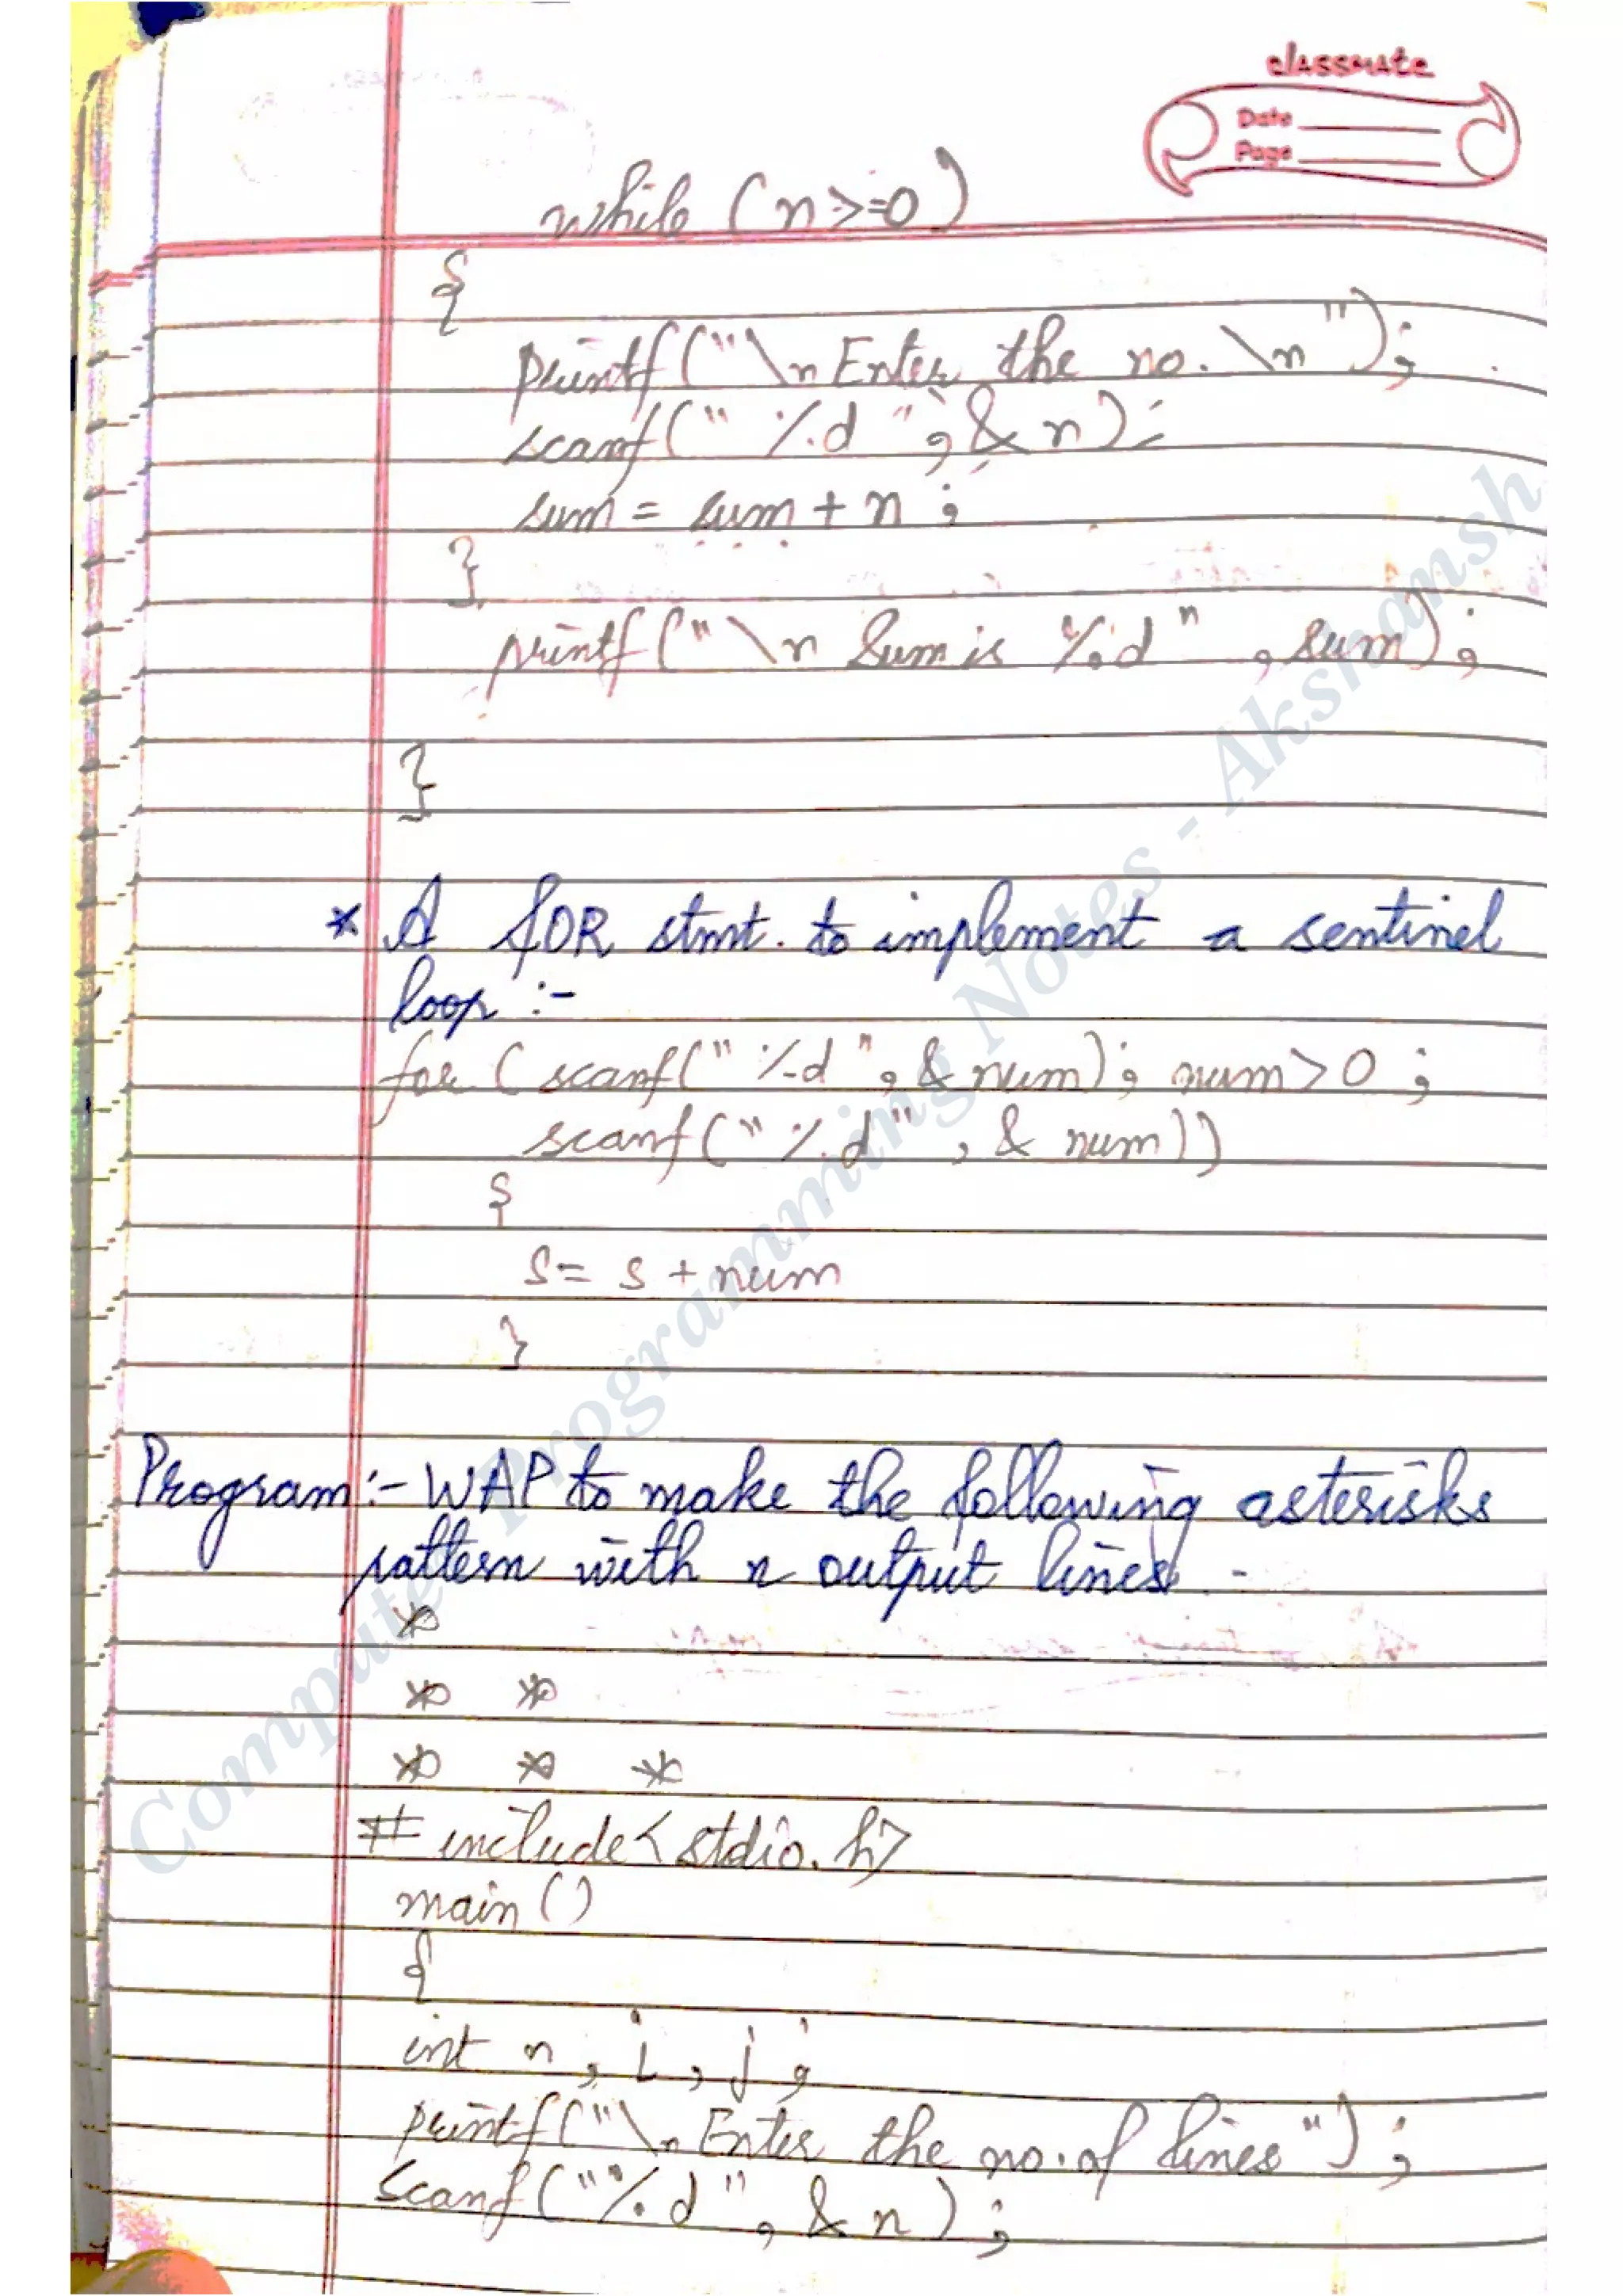 classmate
Date
Page
while (n>=0)
{
printf("\n Enter the no. \n");
scanf("%d", &n);
sum = sum + n ;
}
printf("\n Sum is %d" , sum) ;
}
* A fOR stmt. to implement a sentinel
loop :-
for ( scanf("%d", &num) ; num > 0 ;
scanf("%d" , & num))
{
s = s + num
}
Program :- WAP to make the following asterisks
pattern with n output lines -
*
* *
* * *
# include < stdio.h>
main ()
{
int n , i , j ;
printf("\n Enter the no. of lines") ;
scanf("%d" , & n) ;
Computer Programming Notes - Akshansh